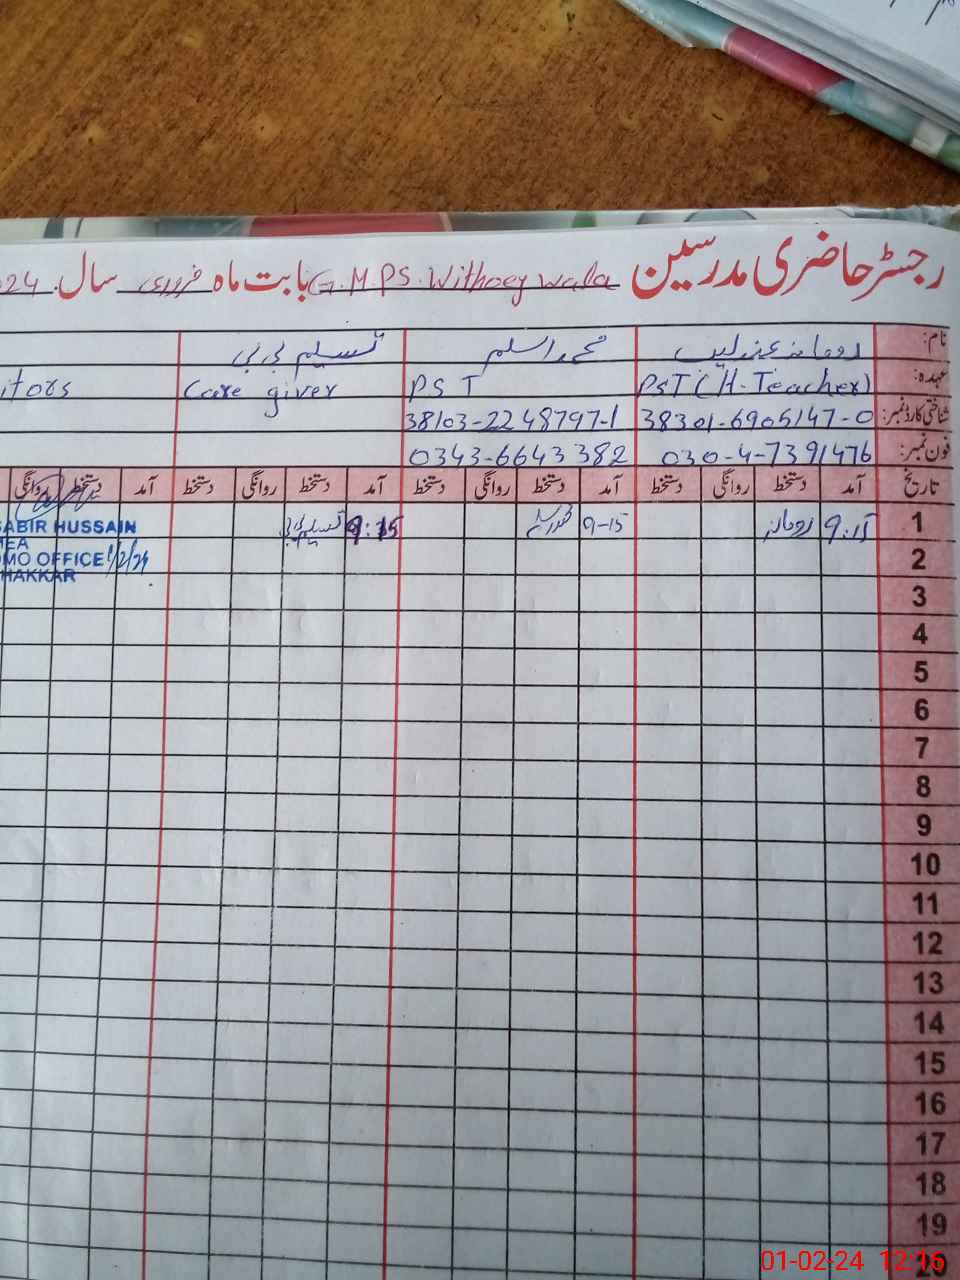 رجسٹر حاضری مدرسین G.M.PS.Withoey wala بابت ماہ فروری سال 24
نام: رومانہ عندلیب محمد اسلم تسلیم بی بی
عہدہ: PST (H-Teacher) PST Care giver itors
شناختی کارڈ نمبر: 38301-6905147-0 38103-2248797-1
فون نمبر: 030-4-7391476 0343-6643382
تاریخ آمد دستخط روانگی دستخط آمد دستخط روانگی دستخط آمد دستخط روانگی دستخط آمد دستخط روانگی
1 9:15 رومانہ 9-15 محمد اسلم 9:15 تسلیم بی بی
SABIR HUSSAIN
MEA
DMO OFFICE 1/2/24
HAKKAR
2
3
4
5
6
7
8
9
10
11
12
13
14
15
16
17
18
19
20
01-02-24 12:16